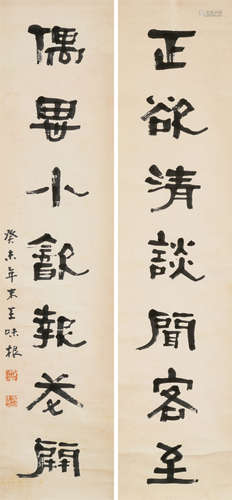 正欲清談聞客至
偶思小飲報花開
癸未年末王味根